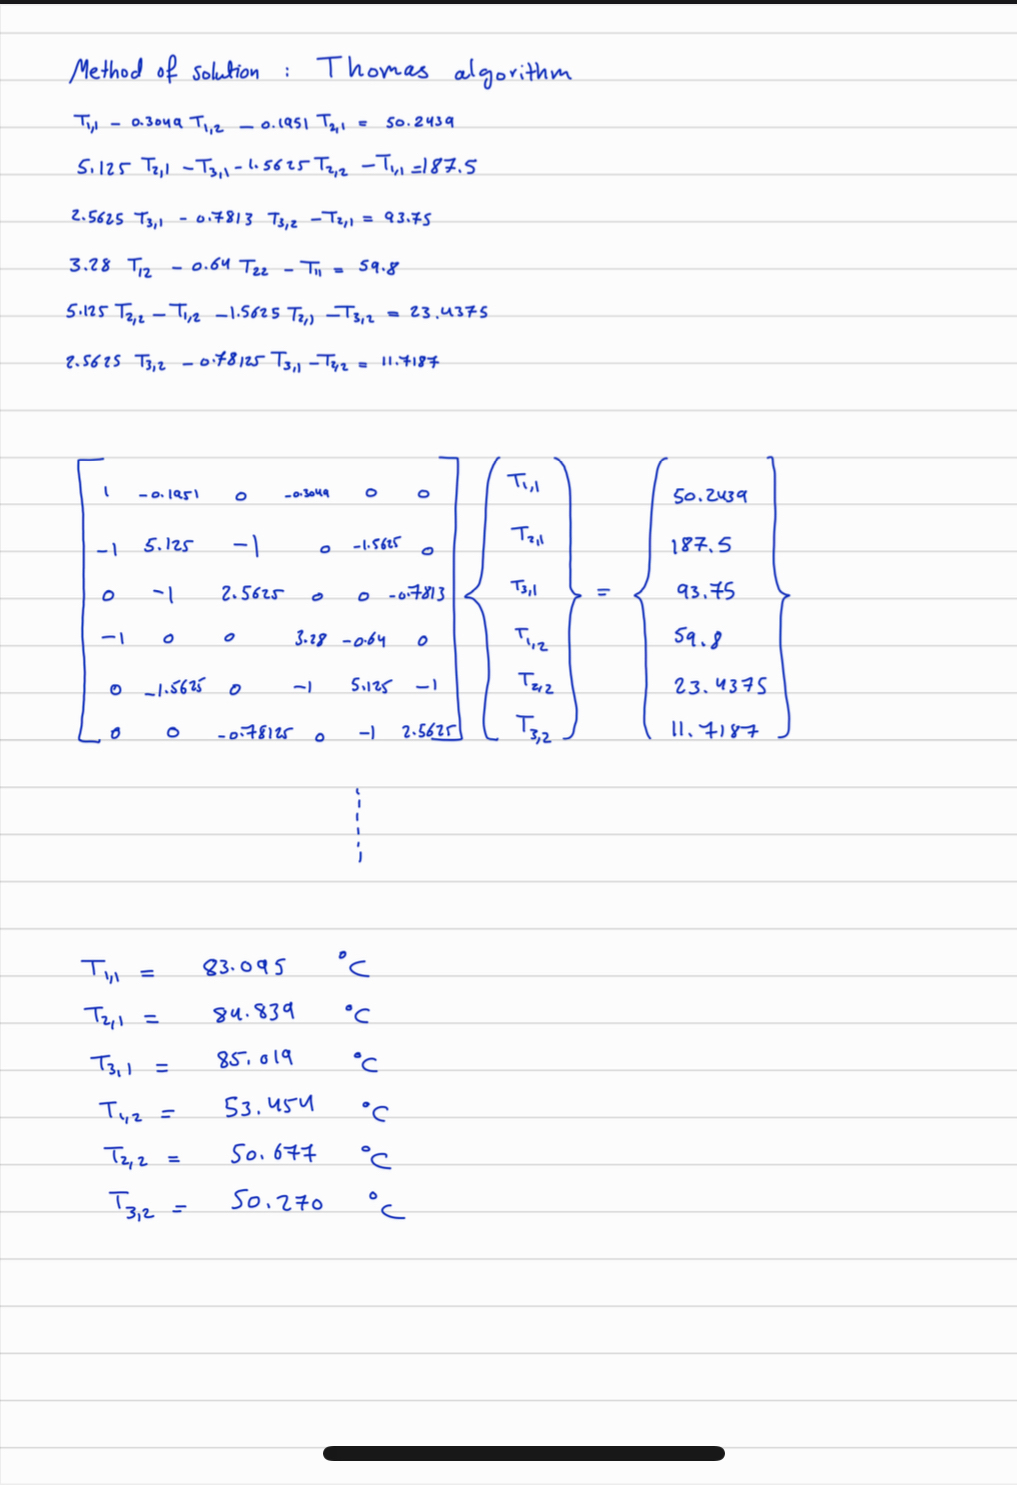 Method of solution : Thomas algorithm
T1,1 - 0.3049 T1,2 - 0.1951 T2,1 = 50.2439
5.125 T2,1 - T3,1 - 1.5625 T2,2 - T1,1 = 187.5
2.5625 T3,1 - 0.7813 T3,2 - T2,1 = 93.75
3.28 T12 - 0.64 T22 - T11 = 59.8
5.125 T2,2 - T1,2 - 1.5625 T2,1 - T3,2 = 23.4375
2.5625 T3,2 - 0.78125 T3,1 - T2,2 = 11.7187
1 -0.1951 0 -0.3049 0 0 T1,1 50.2439
-1 5.125 -1 0 -1.5625 0 T2,1 187.5
0 -1 2.5625 0 0 -0.7813 T3,1 = 93.75
-1 0 0 3.28 -0.64 0 T1,2 59.8
0 -1.5625 0 -1 5.125 -1 T2,2 23.4375
0 0 -0.78125 0 -1 2.5625 T3,2 11.7187
T1,1 = 83.095 °C
T2,1 = 84.839 °C
T3,1 = 85.019 °C
T1,2 = 53.454 °C
T2,2 = 50.677 °C
T3,2 = 50.270 °C